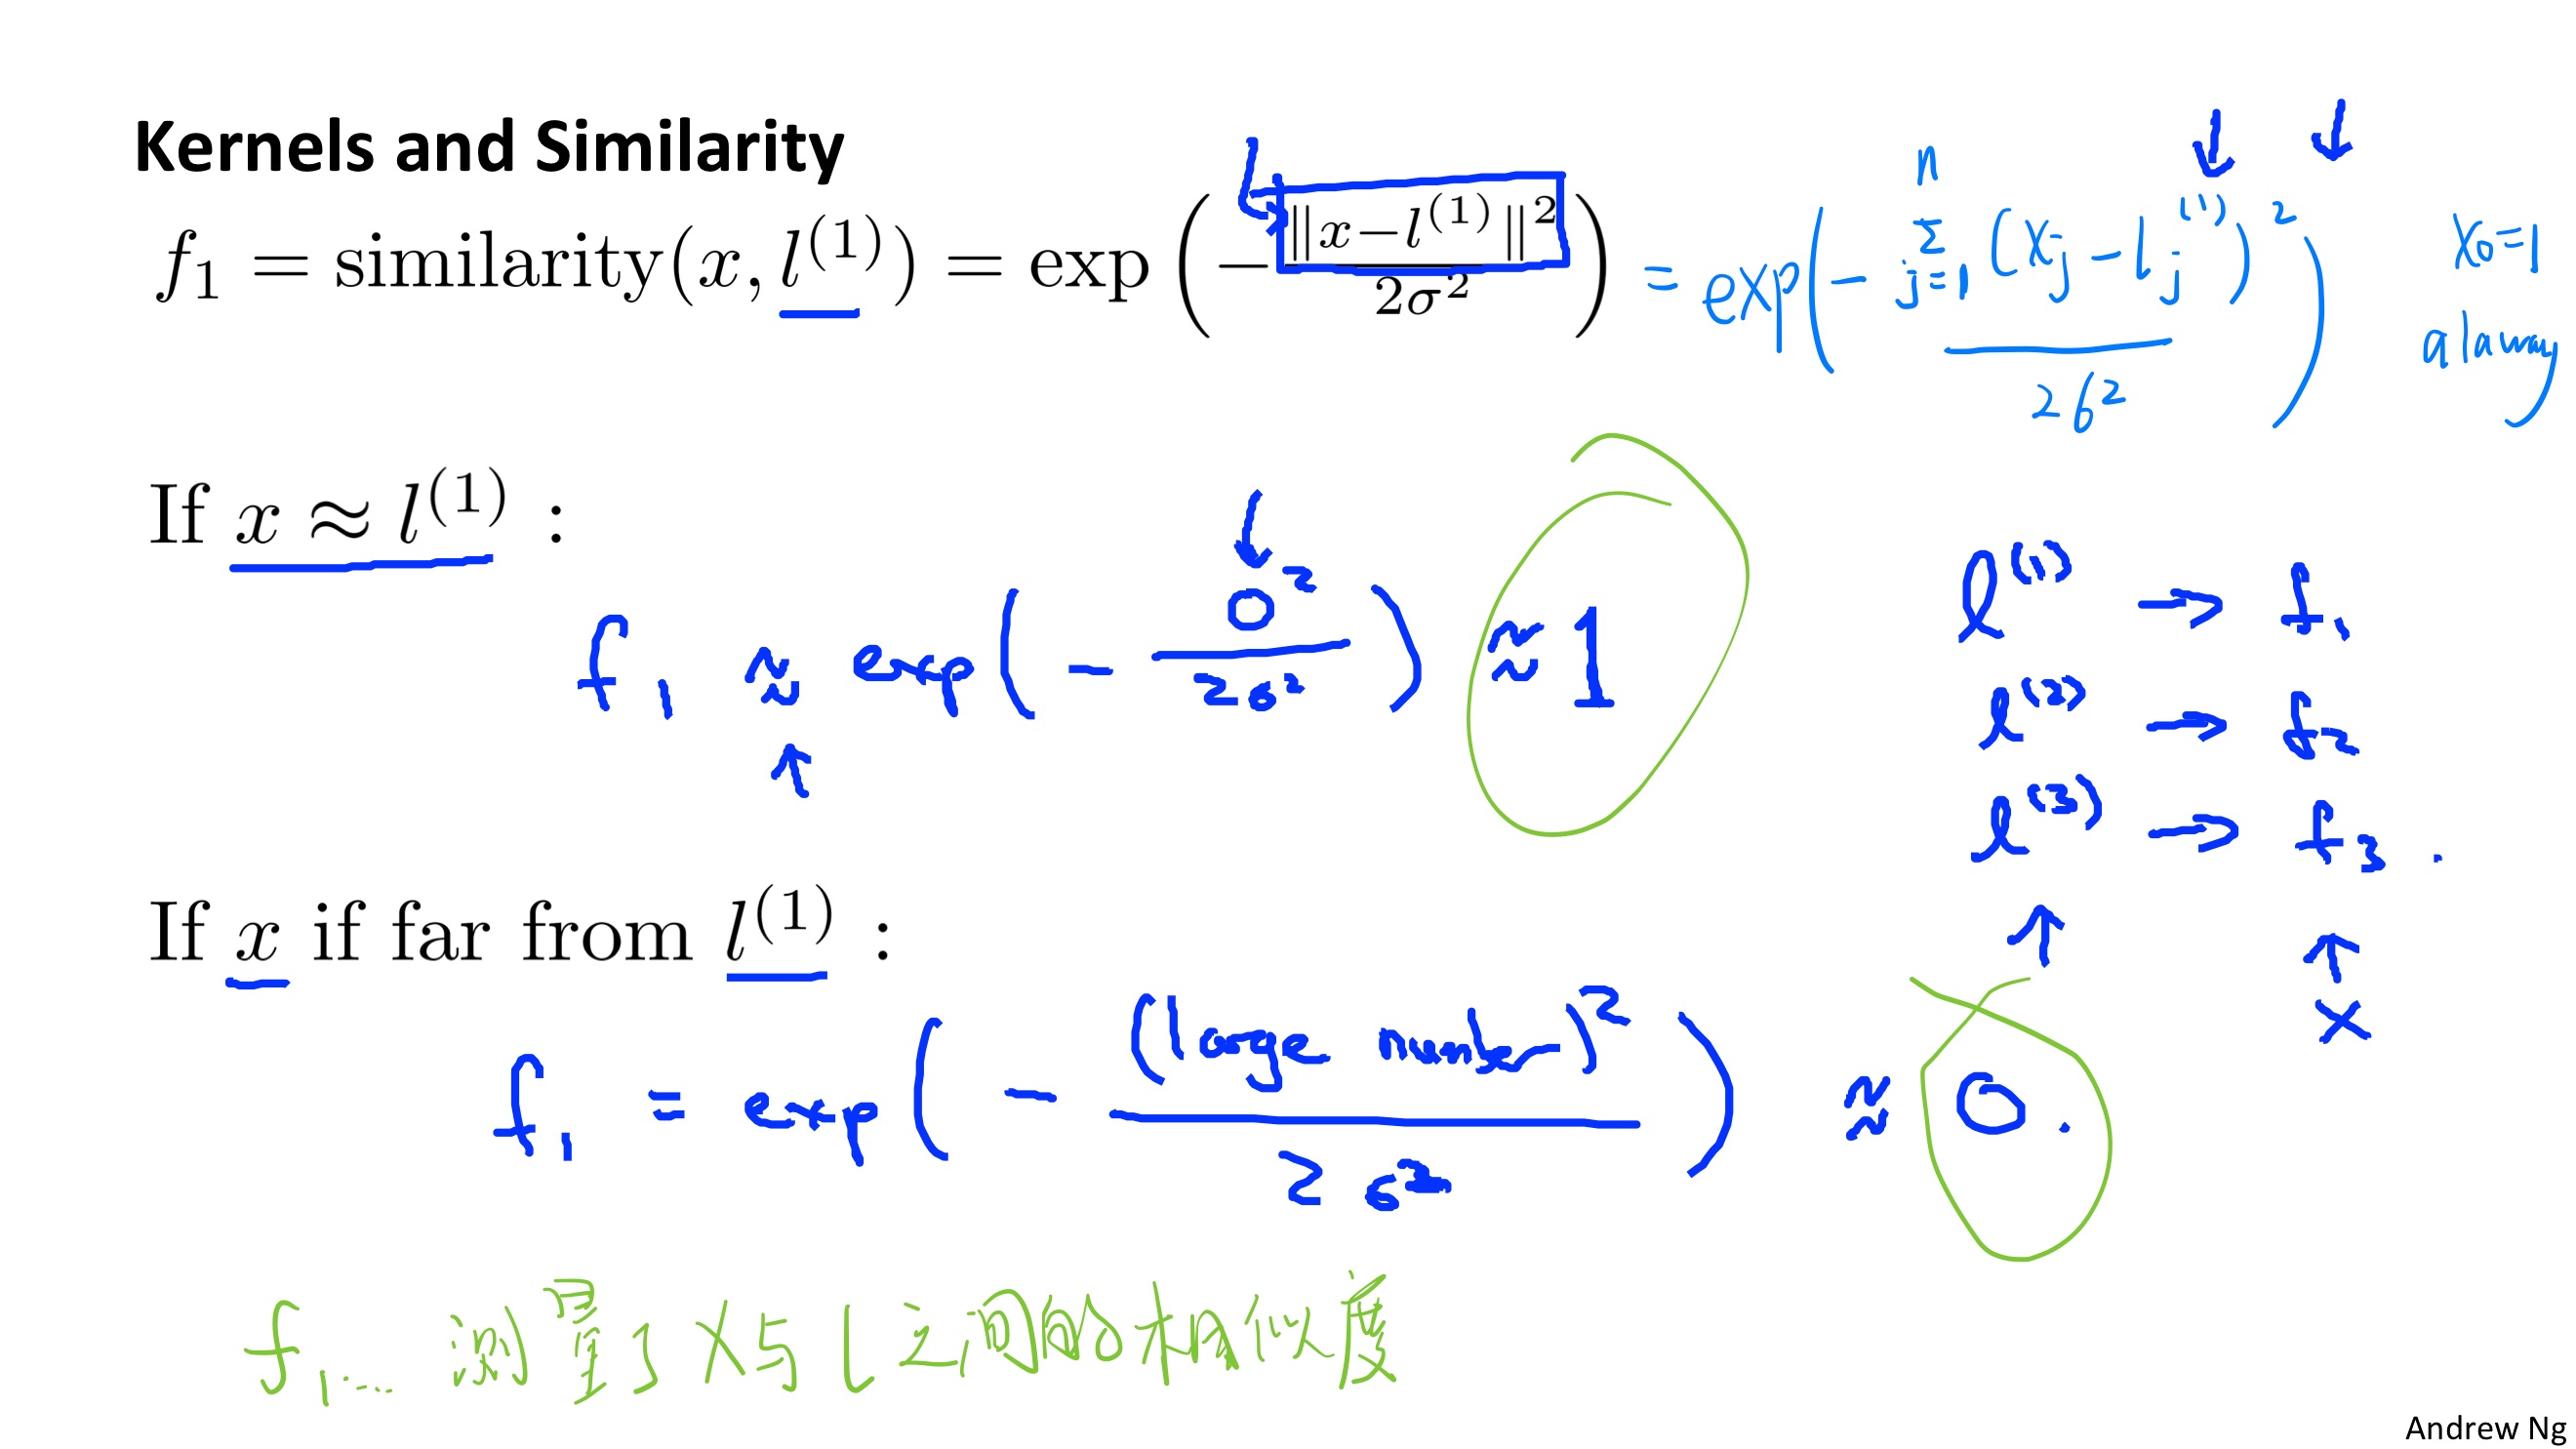 Kernels and Similarity
f₁ = similarity(x, l⁽¹⁾) = exp(−‖x−l⁽¹⁾‖²/2σ²) = exp(−Σⁿⱼ₌₁(xⱼ−lⱼ⁽¹⁾)²/2σ²) x₀=1
alaway
If x ≈ l⁽¹⁾ :
f₁ ≈ exp(−0²/2σ²) ≈ 1
l⁽¹⁾ → f₁
l⁽²⁾ → f₂
l⁽³⁾ → f₃ .
x
If x if far from l⁽¹⁾ :
f₁ = exp(−(large number)²/2σ²) ≈ 0.
f₁... 测量了x与l之间的相似度
Andrew Ng